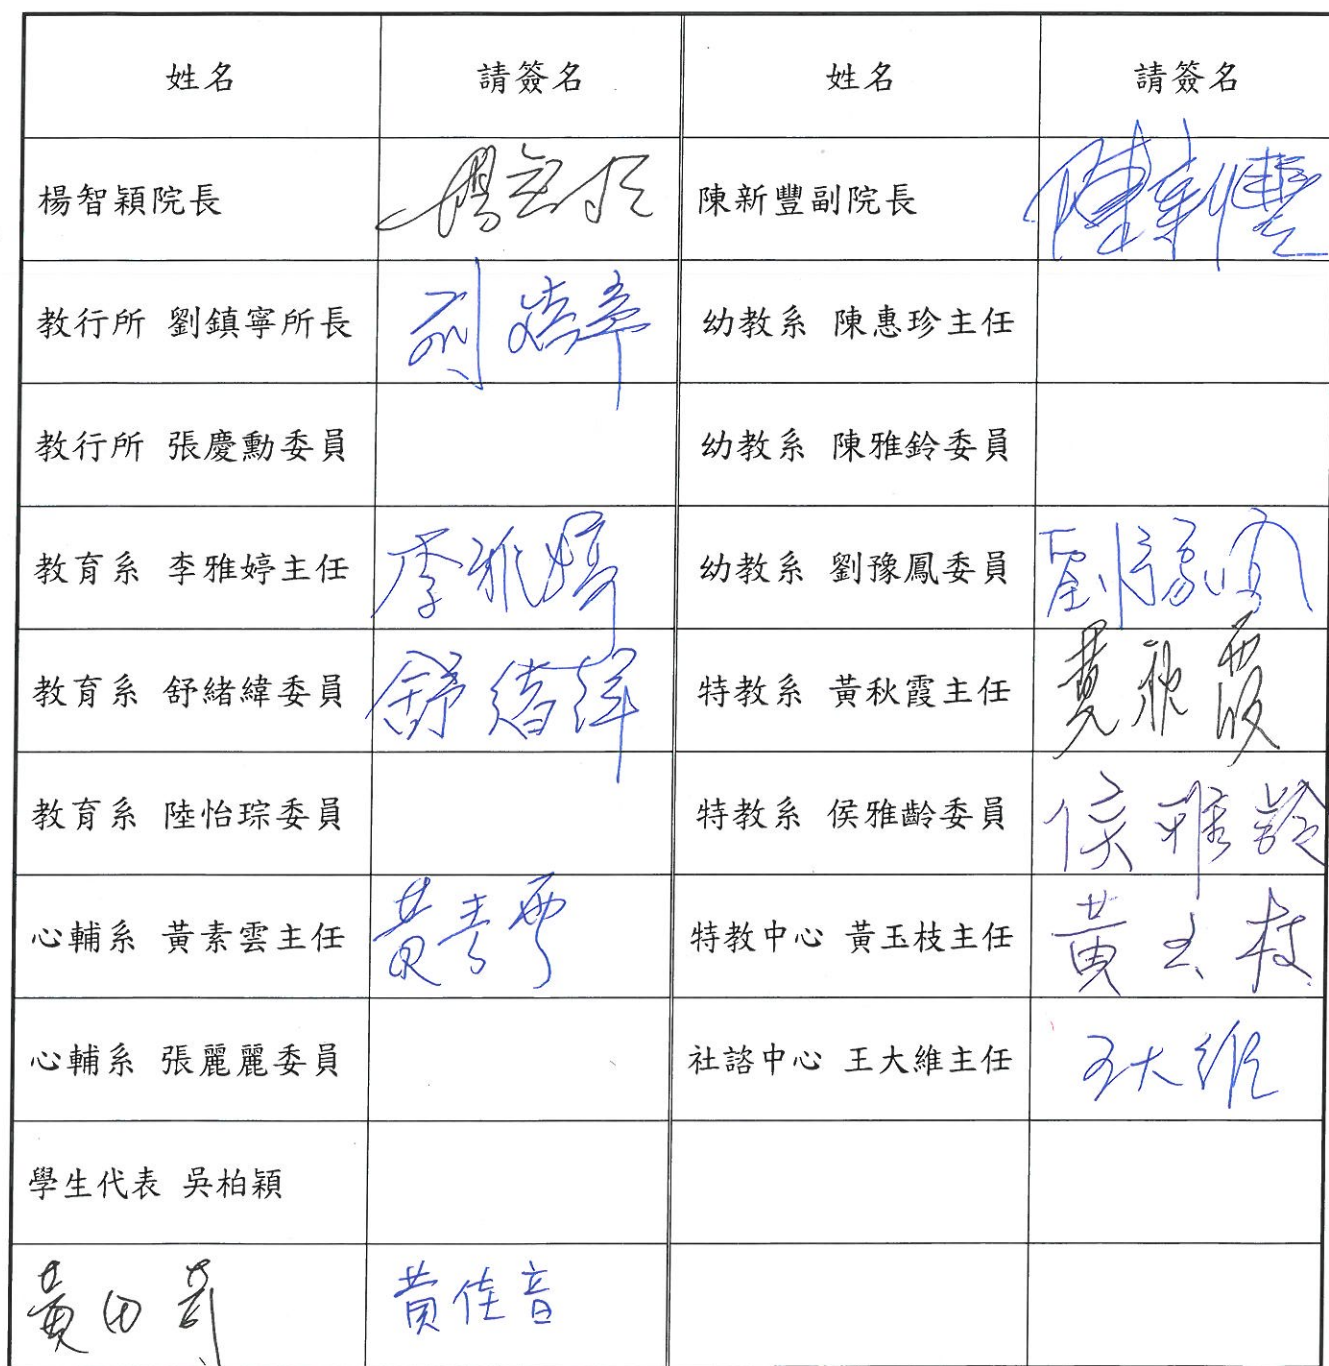 姓名 請簽名 姓名 請簽名
楊智穎院長 楊智穎 陳新豐副院長 陳新豐
教行所 劉鎮寧所長 劉鎮寧 幼教系 陳惠珍主任
教行所 張慶勳委員 幼教系 陳雅鈴委員
教育系 李雅婷主任 李雅婷 幼教系 劉豫鳳委員 劉豫鳳
教育系 舒緒緯委員 舒緒緯 特教系 黃秋霞主任 黃秋霞
教育系 陸怡琮委員 特教系 侯雅齡委員 侯雅齡
心輔系 黃素雲主任 黃素雲 特教中心 黃玉枝主任 黃玉枝
心輔系 張麗麗委員 社諮中心 王大維主任 王大維
學生代表 吳柏穎
黃佳音